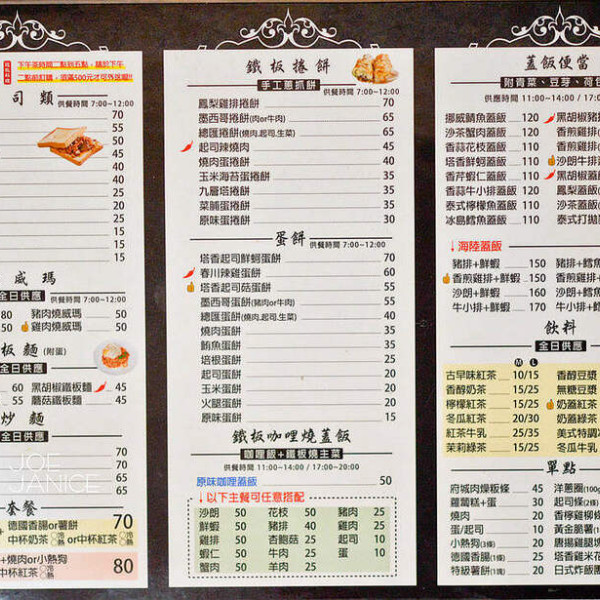 下午茶時間二點到五點，請於下午
二點前訂購，須滿500元才可外送喔!!
司類
供餐時間 7:00~12:00
70
55
50
45
40
40
35
30
25
20
25
15
15
15
威瑪
全日供應 供餐時間 7:00~12:00
80 豬肉燒威瑪 50
50 雞肉燒威瑪 50
板麵 (附蛋)
全日供應
60 黑胡椒鐵板麵 45
55 蘑菇鐵板麵 45
炒麵
全日供應
70
70
65
65
JOE
JANICE
套餐
+ 德國香腸or薯餅 70
中杯奶茶 冷 熱 or中杯紅茶 冷 熱
+燒肉or小熱狗 80
中杯紅茶 冷 熱
鐵板捲餅
手工蔥抓餅
供餐時間 7:00~12:00
鳳梨雞排捲餅 70
墨西哥捲餅(肉or牛肉) 65
總匯捲餅(燒肉,起司,生菜) 65
起司辣燒肉 45
燒肉蛋捲餅 40
玉米海苔蛋捲餅 40
九層塔捲餅 35
菜脯蛋捲餅 35
原味蛋捲餅 30
蛋餅
供餐時間 7:00~12:00
塔香起司鮮蚵蛋餅 70
春川辣雞蛋餅 60
塔香起司菇蛋餅 55
墨西哥蛋餅(豬肉or牛肉) 55
總匯蛋餅(燒肉,起司,生菜) 55
燒肉蛋餅 35
鮪魚蛋餅 30
培根蛋餅 25
起司蛋餅 25
玉米蛋餅 20
火腿蛋餅 20
原味蛋餅 15
鐵板咖哩燒蓋飯
咖哩飯+鐵板燒主菜
供餐時間 11:00~14:00 / 17:00~20:00
原味咖哩蓋飯 50
↓以下主餐可任意搭配
沙朗 50 花枝 50 豬肉 25
鮮蝦 50 豬排 40 雞肉 25
香腸 50 杏鮑菇 25
蝦仁 50 牛肉 25 蛋 10
蟹肉 50 羊肉 25
蓋飯便當
附青菜、豆芽、荷包
供應時間 11:00~14:00 / 17:0
挪威鯖魚蓋飯 120 黑胡椒豬
沙茶蟹肉蓋飯 120 香煎雞排
香蒜花枝蓋飯 110 香煎豬排
塔香鮮蚵蓋飯 120 沙朗牛排
香芹蝦仁蓋飯 110 黑胡椒蓋飯
香蒜牛小排蓋飯 110 鳳梨蓋飯
泰式檸檬魚蓋飯 110 沙茶蓋飯
冰島鱈魚蓋飯 110 泰式打拋
↓海陸蓋飯
豬排+鮮蝦 150 豬排+鱈
香煎雞排+鮮蝦 150 香煎雞排
沙朗+鮮蝦 160 沙朗+鱈
牛小排+鮮蝦 170 牛小排+
飲料
全日供應
M L
古早味紅茶 10/15 香醇豆漿
香醇奶茶 15/25 無糖豆漿
檸檬紅茶 15/25 奶蓋紅茶
冬瓜紅茶 20/30 奶蓋綠茶
紅茶牛乳 15/25 美式特調
茉莉綠茶 15/25 冬瓜牛乳
單點
府城肉燥板條 45 洋蔥圈(100g
蘿蔔糕+蛋 30 起司條(2條)
燒肉 20 香檸雞柳條
蛋/起司 10 黃金脆薯
小熱狗(3條) 20 唐揚雞腿塊
德國香腸(1條) 25 塔香雞米花
特級薯餅(1塊) 20 日式炸飯團